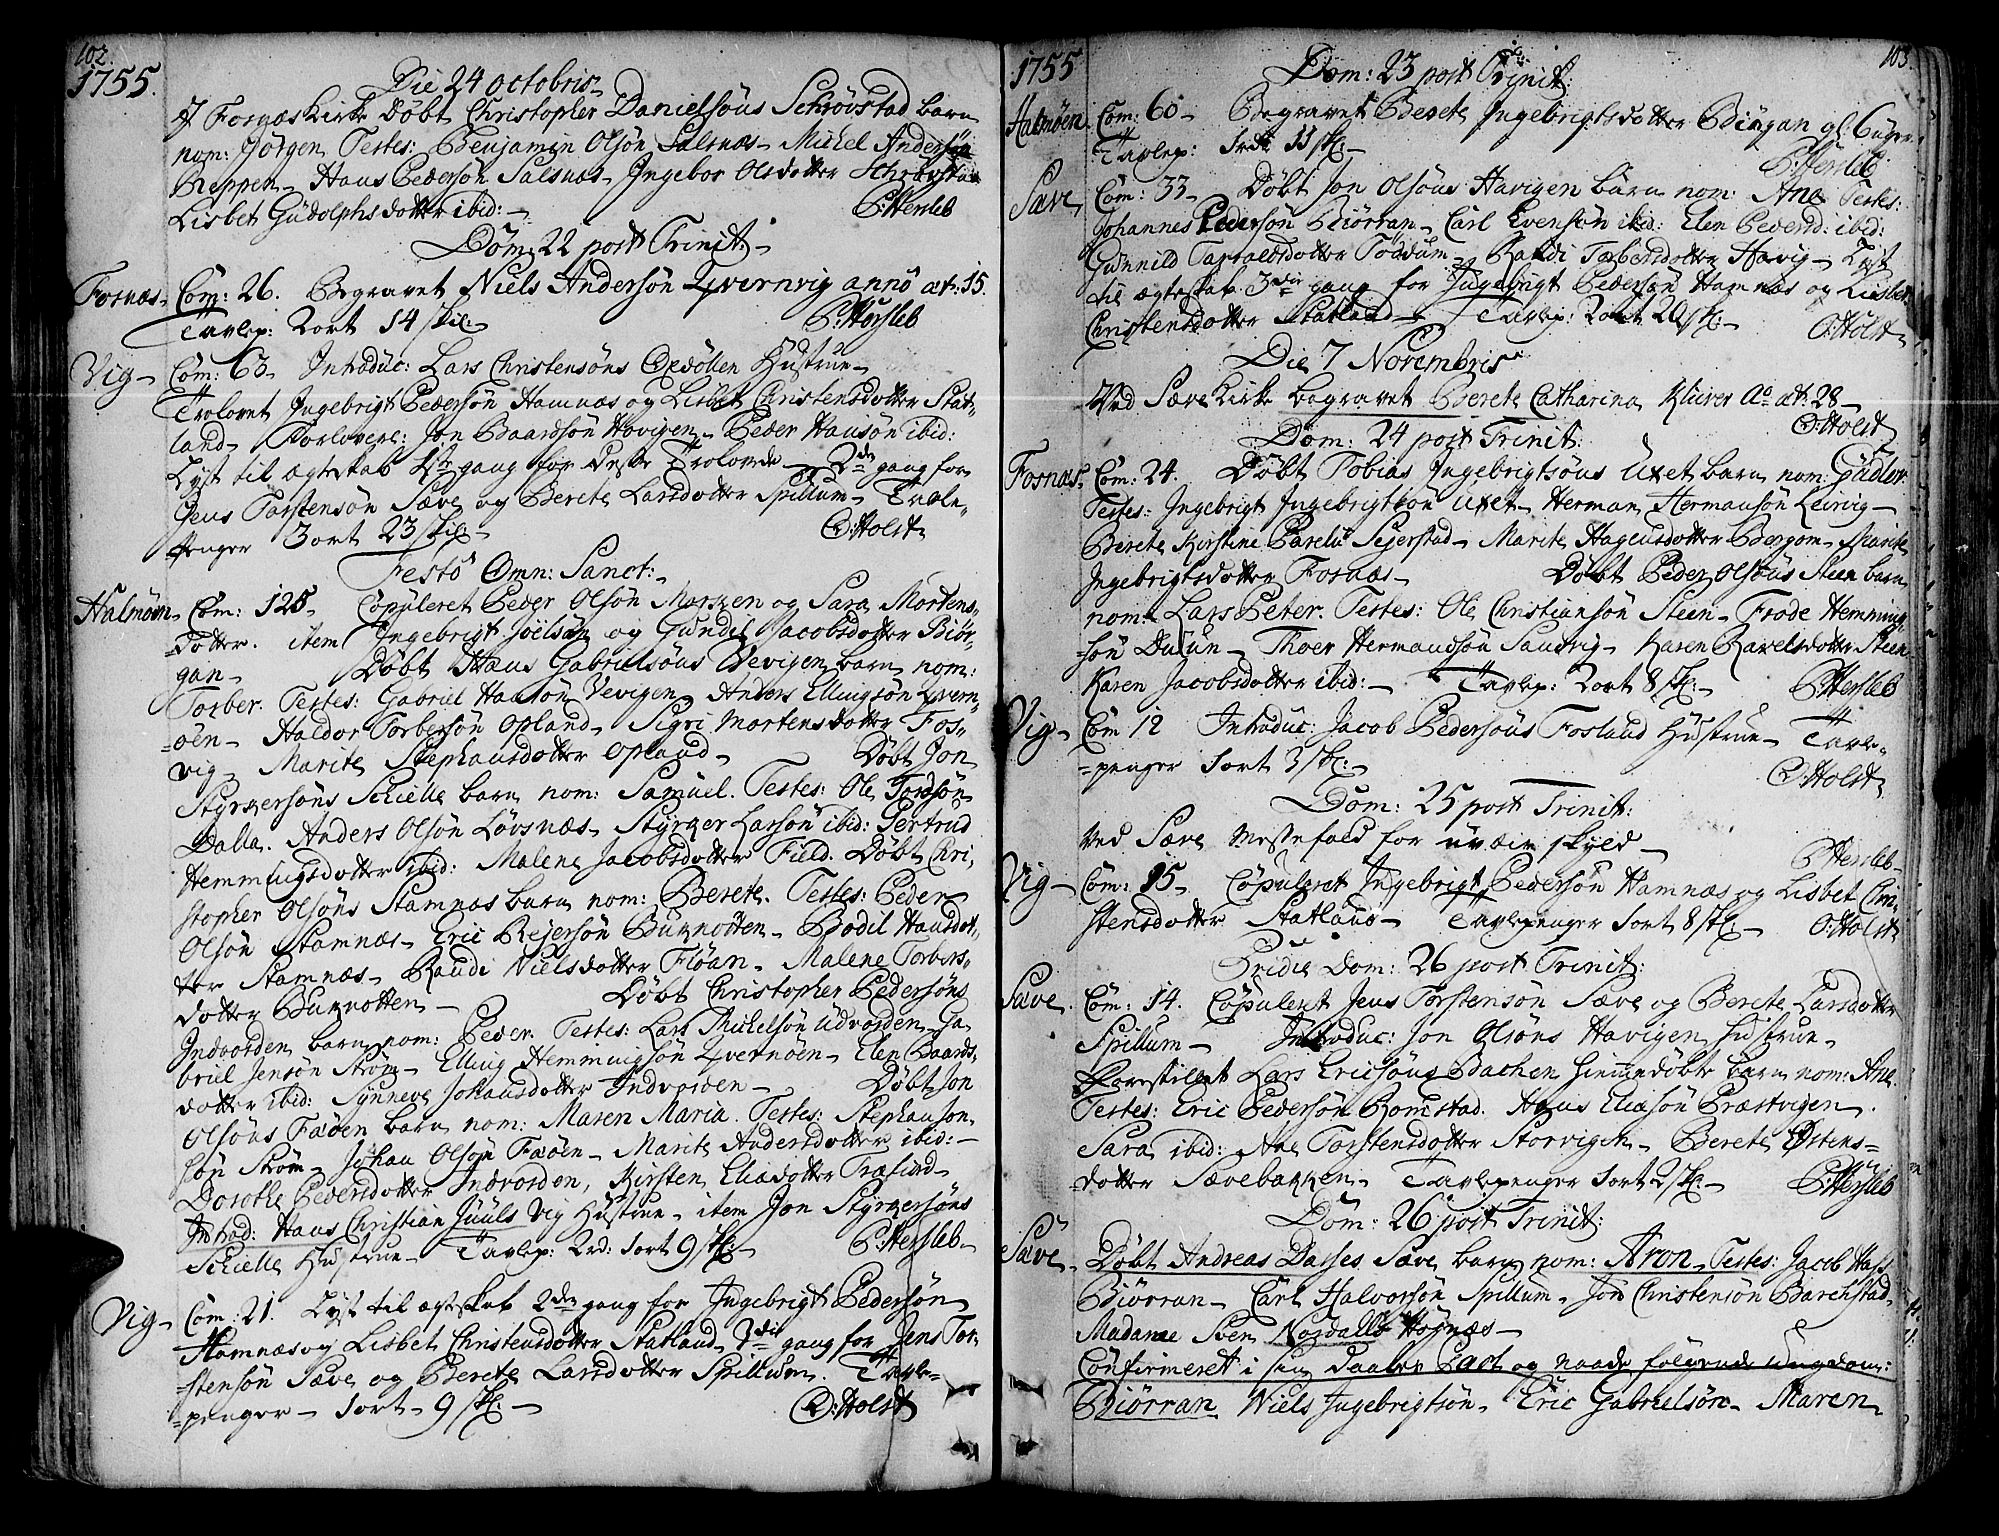 102.
1755.
Die 24 octobris
I Fosnæs Kirke Døbt Christopher Danielsøns Schrøvstad barn
nom: Jørgen Testes: Benjamin Olsøn Salsnæs - Michel Andersøn
Reppen - Hans Pedersøn Salsnæs - Ingebor Olsdotter Schrøvstad
Lisbet Gudolphsdotter ibid: - P: Hersleb
Dom: 22 post Trinit: -
Fosnæs - Com: 26. Begravet Niels Andersøn Qvernvig anno æt: 15.
Tavlep: 2 ort 14 skil: - P: Hersleb
Vig - Com: 63 - Introduc: Lars Christensøns Hustrue -
Trolovet Ingebrigt Pedersøn Hamnæs og Lisbet Christensdotter Stat-
land - Forlovere: Jon Baardsøn Havigen - Peder Hansøn ibid:
Lyst til ægteskab 1ste gang for disse Trolovede - 2den gang for
Jens Torstensøn Sæve og Berete Larsdotter Spillum - Tavle-
penger 3 ort 23 skil - O: Holst
Festo Omn: Sanct: -
Halmøen - Com: 125 - Copuleret Peder Olsøn Morken og Sara Mortens-
dotter. item Ingebrigt Joelsøn og Gundel Jacobsdotter Biør-
gan - Døbt Hans Gabrielsøns Vevigen barn nom:
Torber. Testes: Gabriel Hansøn Vevigen - Anders Ellingsøn Qvern-
øen - Haldor Torbersøn Opland - Sigri Mortensdotter Fos-
vig - Marite Stephansdotter Opland - Døbt Jon
Styrkersøns Schielle barn nom: Samuel. Testes: Ole Tordsøn
Dalla. Anders Olsøn Løvsnæs - Styrker Larsøn ibid: Gertrud
Hemmingsdotter ibid: Malene Jacobsdotter Field. Døbt Chri-
stopher Olsøns Stamnæs barn nom: Berete. Testes: Peder
Olsøn Stamnæs - Eric Rejersøn Burnotten - Bodil Hansdot-
ter Stamnæs - Randi Nielsdotter Fløan - Malene Torbers-
dotter Burnotten - Døbt Christopher Pedersøns
Indvorden barn nom: Peder. Testes: Lars Michelsøn Udvorden - Ga-
briel Jensøn Strøm - Elling Hemmingsøn Qvernøen - Elen Baards-
dotter ibid: Synneve Johansdotter Indvorden - Døbt Jon
Olsøns Faøen barn nom: Maren Maria. Testes: Stephan Jon-
søn Strøm - Johan Olsøn Faøen - Marite Andersdotter ibid: -
Dorothe Pedersdotter Indvorden, Kirsten Eliædotter Træsund -
Introd: Hans Christian Juuls Vig Hustrue - item Jon Styrkersøns
Schielle Hustrue - Tavlep: 2 rd: 1 ort 9 sk: - P: Hersleb -
Vig - Com: 21. Lyst til ægteskab 2den gang for Ingebrigt Pedersøn
Hamnæs og Lisbet Christensdotter Statland - 3die gang for Jens Tor-
stensøn Sæve og Berete Larsdotter Spillum. Tavle-
penger - 1 ort - 9 sk: - O: Holst
103.
1755
Dom: 23 post Trinit:
Halmøen Com: 60 - Begravet Berete Ingebrigtsdotter Biørgan gl: 6 uger -
Tavlep: 1 rdl: 11 sk: - P: Hersleb
Sæve Com: 33 - Døbt Jon Olsøns Havigen barn nom: Ane Testes:
Johannes Pedersøn Biørran - Carl Evensøn ibid: Elen Pedersd: ibid:
Gunnild Tarraldsdotter Foddum - Randi Torbersdotter Havig - Lyst
til ægteskab 3die gang for Ingebrigt Pedersøn Hamnæs og Lisbet
Christensdotter Statland - Tavlep: 2 ort 20 sk: - O: Holst
Die 7 Novembris
Ved Sæve Kirke begravet Berete Catharina Klüver Ao æt: 28 -
O: Holst
Dom: 24 post Trinit:
Fosnæs - Com: 24. Døbt Tobias Ingebrigtsøns Uxet barn nom: Gudlov
Testes: Ingebrigt Ingebrigtsøn Uxet - Herman Hermansøn Leirvig -
Berete Kirstine Pareliu Sejerstad - Marite Hagensdotter Bergom - Marite
Ingebrigtsdotter Fosnæs - Døbt Peder Olsøns Steen barn
nom - Lars Peter. Testes: Ole Christiansøn Steen - Frode Hemming-
søn Duun - Thoer Hermandsøn Sandvig - Karen Pavelsdotter Steen
Karen Jacobsdotter ibid: - Tavlep: 2 ort 8 sk: - P: Hersleb
Vig - Com 12 Introduc: Jacob Pedersøns Fosland Hustrue - Tavle-
penger 1 ort 3 sk: - O: Holst
Dom: 25 post Trinit:
Ved Sæve Messefald for uveir skyld - P: Hersleb
Vig - Com: 15 - Copuleret Ingebrigt Pedersøn Hamnæs og Lisbet Chri-
stensdotter Statland - Tavlepenger 1 ort 8 sk: - O: Holst
Pridie Dom: 26 post Trinit:
Sæve. Com: 14. Copuleret Jens Torstensøn Sæve og Berete Larsdotter
Spillum - Introduc: Jon Olsøns Havigen Hustrue -
Forestillet Lars Ericsøns Bachen hiemmedøbte barn nom: Ane
Testes: Eric Pedersøn Romstad. Hans Eliæsøn Præstvigen.
Sara ibid: Ane Torstensdotter Storvigen - Berete Østens-
dotter Sævebakken - Tavlepenger 1 ort 2 sk: - P: Hersleb
Dom: 26 post Trinit:
Sæve - Døbt Andreas Dasses Sæve barn nom: Aron - Testes: Jacob Hass
Biørran - Carl Halvorsøn Spillum - Jon Christensøn Barchstad -
Madame Sven Nordalls Høgnæs -
Confirmeret i sin Daabes Pact og naade følgende Ungdom:
Biørran Niels Ingebrigtsøn - Eric Gabrielsøn - Maren